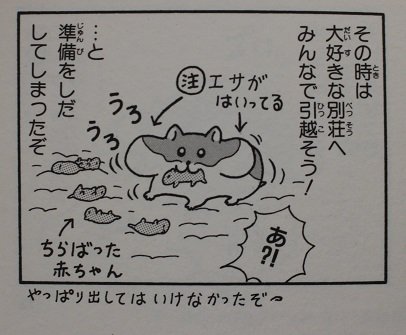 その時は
大好きな別荘へ
みんなで引越そう!
…と
準備をしだ
してしまったぞ
注 エサが
はいってる
うろ
うろ
ちらばった
赤ちゃん
あ?!
やっぱり出してはいけなかったぞ〜